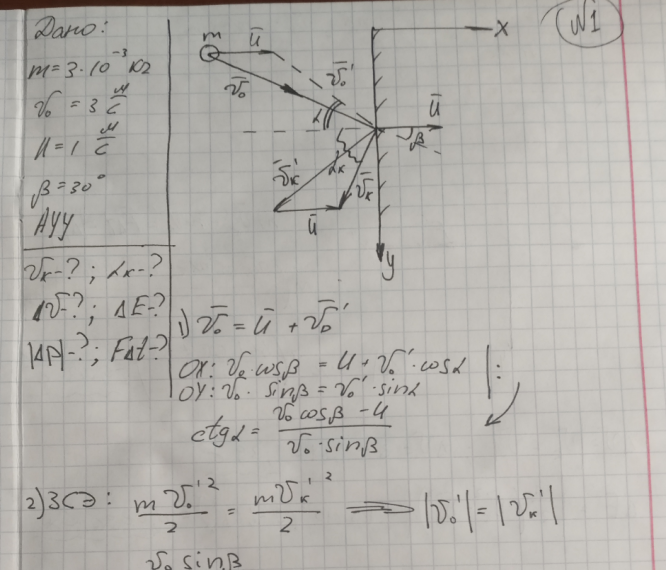 Дано:
m = 3·10⁻³ кг
v₀ = 3 м/с
U = 1 м/с
β = 30°
АУУ
vк-? ; αк-?
Δv-? ; ΔE-?
|Δp|-? ; FΔt-?
N1
m
ū
v̄₀
v̄₀'
α
x
ū
β
v̄к'
αк
v̄к
ū
y
1) v̄₀ = ū + v̄₀'
OX: v₀·cosβ = U + v₀'·cosα
OY: v₀·sinβ = v₀'·sinα | :
ctgα = (v₀cosβ - U) / (v₀·sinβ)
2) ЗСЭ: mv₀'²/2 = mvк'²/2 ⟹ |v₀'| = |vк'|
v₀ sinβ